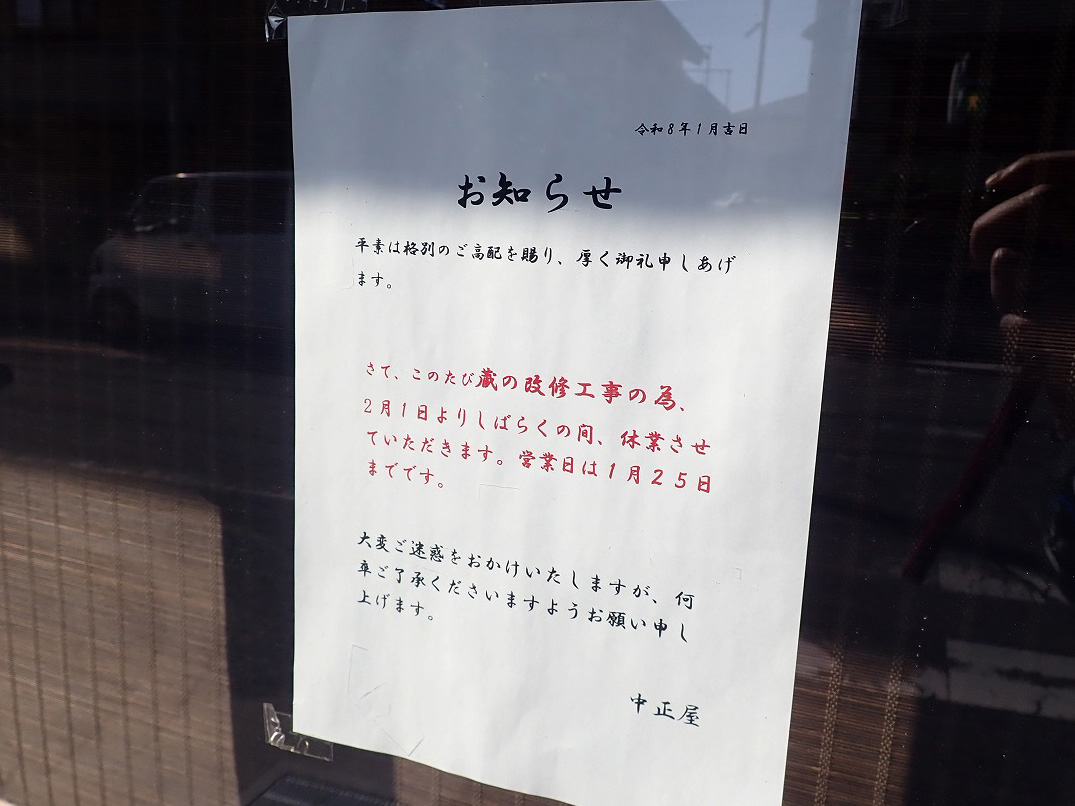 令和8年1月吉日
お知らせ
平素は格別のご高配を賜り、厚く御礼申しあげ
ます。
さて、このたび蔵の改修工事の為、
2月1日よりしばらくの間、休業させ
ていただきます。営業日は1月25日
までです。
大変ご迷惑をおかけいたしますが、何
卒ご了承くださいますようお願い申し
上げます。
中正屋